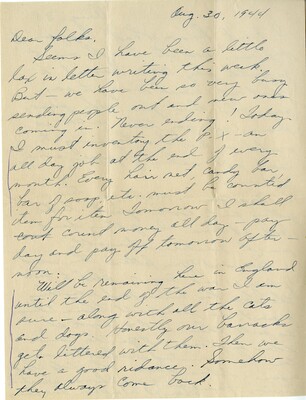 Aug. 30, 1944
Dear folks,
Seems I have been a little
lax in letter writing this week,
But - we have been so very busy
sending people out and new ones
coming in. Never ending! Today
I must inventory the P X - an
all day job at the end of every
month. Every hair net, candy bar,
bar of soap, etc. must be counted
item for item. Tomorrow I shall
count money all day - pay
day and pay off tomorrow after-
noon.
Will be remaining here in England
until the end of the war I am
sure - along with all the cats
and dogs. Honestly our barracks
gets littered with them. Then we
have a good ridancy. Somehow
they always come back.